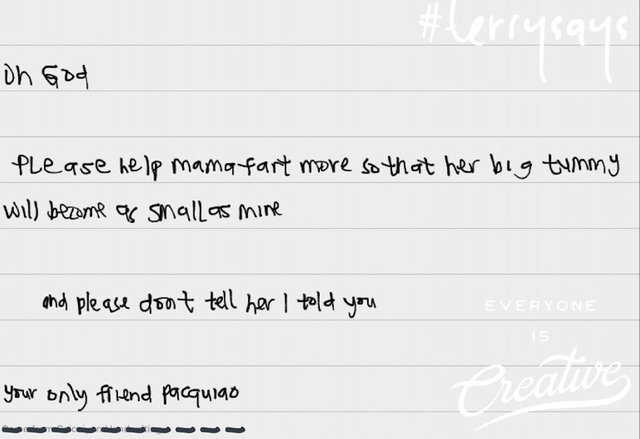 #lerrysays
Oh God
Please help mama fart more so that her big tummy
will become as small as mine
and please don't tell her I told you
EVERYONE
IS
Creative
your only friend pacquiao